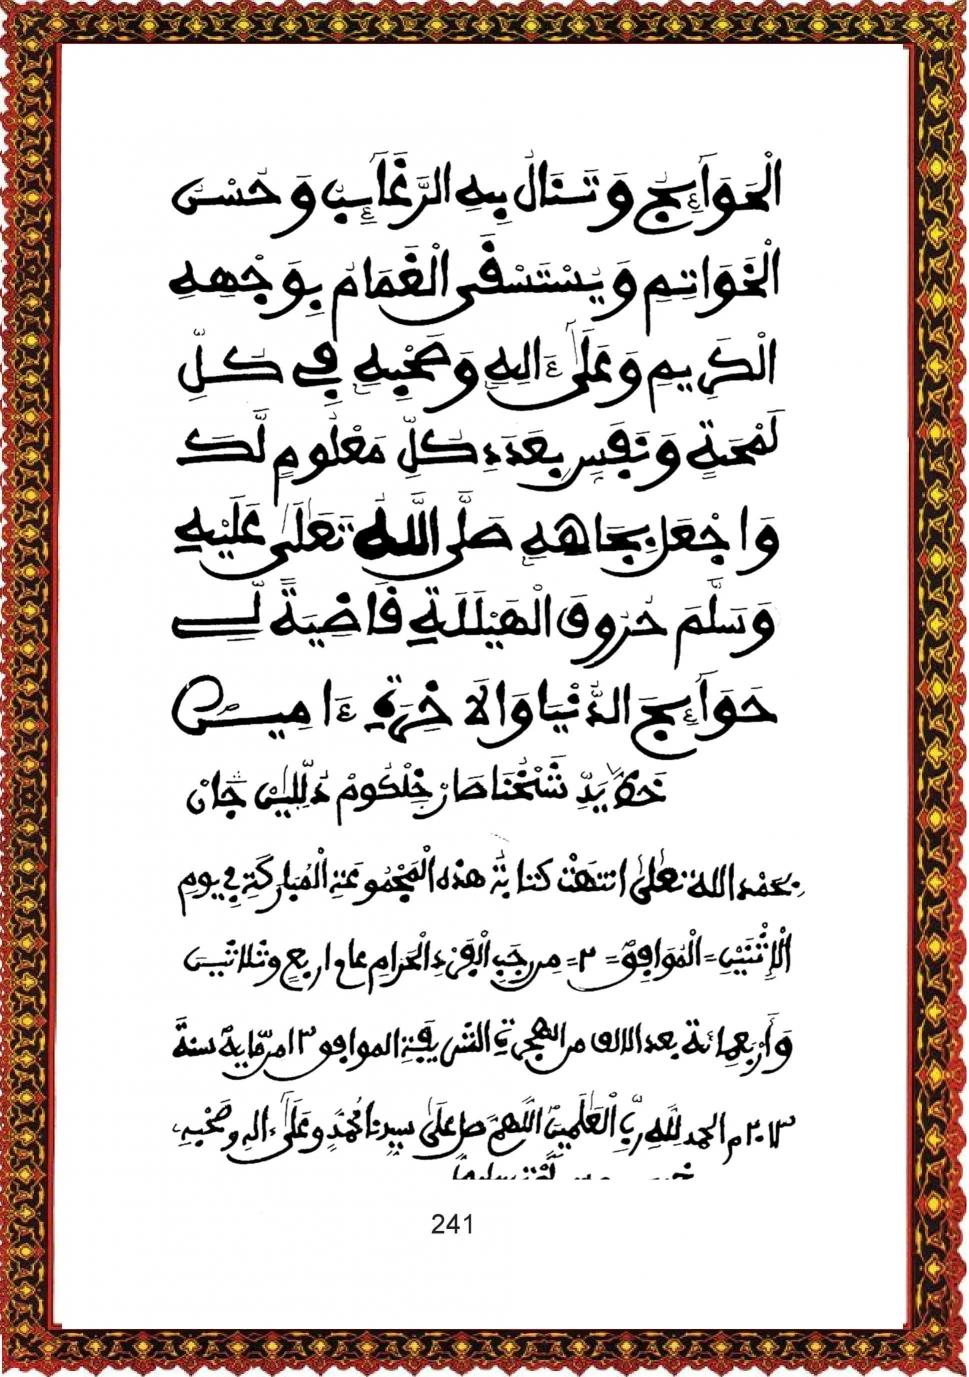 الْحَوَآئِجُ وَتُنَالُ بِهِ الرَّغَآئِبُ وَحُسْنُ
الْخَوَاتِمِ وَيُسْتَسْقَى الْغَمَامُ بِوَجْهِهِ
الْكَرِيمِ وَعَلَىٰٓ ءَالِهِ وَصَحْبِهِ فِي كُلِّ
لَمْحَةٍ وَنَفَسٍ بِعَدَدِ كُلِّ مَعْلُومٍ لَّكَ
وَاجْعَلْ بِجَاهِهِ صَلَّى اللَّهُ تَعَالَىٰ عَلَيْهِ
وَسَلَّمَ حُرُوفَ الْهَيْلَلَةِ قَاضِيَةً لِّي
حَوَآئِجَ الدُّنْيَا وَالَاخِرَةِ ءَامِيـن
شَيْخُنَا صَارْ جَانْ
بحَمْدِ اللهِ تعَلىٰ انتَهَتْ كتابَة هذه الْمَجْمُوعَةِ الْمُبَارَكَةِ فِي يوم
الْإِثْنَيْنِ = الْمُوَافِقِ = ٣ = مِن رجَبِ الْفَرْدِ الْحَرَامِ عام اربعٍ وثلاثين
وَأَرْبَعِمائة بعد الالف من الْهِجْرَةِ الشَّرِيفَةِ الموافق ١٣ من مايه سنة
٢٠١٣م الحمد لِلّهِ رَبِّ الْعَالَمِينَ اللَّهُمَّ صل عَلَىٰ سيدنا مُحَمَّدٍ وعَلَىٰٓ ءاله وصَحْبِهِ